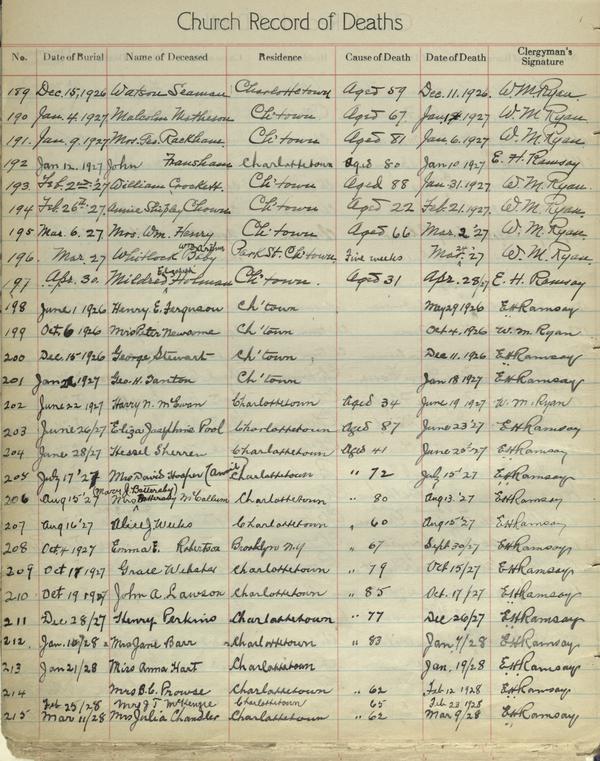 Church Record of Deaths
No. Date of Burial Name of Deceased Residence Cause of Death Date of Death Clergyman's Signature
189 Dec. 15, 1926 Watson Seaman Charlottetown Aged 59 Dec. 11. 1926. W. M. Ryan.
190 Jan. 4. 1927 Malcolm Matheson Ch'town Aged 67 Jan. 1927. W. M. Ryan
191. Jan. 9. 1927 Mrs. Geo. Rackham. Ch'town Aged 81 Jan. 6. 1927. W. M. Ryan.
192 Jan 12. 1927 John Fransham Charlottetown Aged 80 Jan 10 1927 E. H. Ramsay
193. Feb. 2nd. 27 William Crockett. Ch'town Aged 88 Jan. 31. 1927 W. M. Ryan.
194 Feb. 26th. 27. Annie Shipley Chown Ch'town Aged 22 Feb. 21. 1927. W. M. Ryan.
195 Mar. 6. 27. Mrs. Wm. Henry Ch'town Aged 66 Mar. 2 '27 W. M. Ryan.
196. Mar. 27 Whitlock Wm Arthur Baby Park St. Ch'town Five weeks Mar. '27. W. M. Ryan.
197 Apr. 30. Mildred Holman Ch'town. Aged 31 Apr. 28/27 E. H. Ramsay
198 June 1 1926 Henry E. Ferguson Ch'town May 29 1926 EH Ramsay
199 Oct 6 1926 Mrs Peter Newsome Ch'town Oct 4. 1926 W. M Ryan
200 Dec. 15 1926 George Stewart Ch'town Dec 11. 1926 EH Ramsay
201 Jan 1927 Geo. H. Tanton Ch'town Jan 18 1927 EH Ramsay
202 June 22 1927 Harry N. McEwan Charlottetown Aged 34 June 19 1927 W. M. Ryan
203 June 26/27 Eliza Josephine Pool Charlottetown Aged 87 June 23 '27 EH Ramsay
204 June 28/27 Hessel Sherren Charlottetown Aged 41 June 20 '27 EH Ramsay
205 July 17 '27 Mrs David Hooper (Annie) Charlottetown " 72 July 15 '27 EH Ramsay
206 Aug 15 '27 (Mary J. Battersby) Mrs Battersby McCallum Charlottetown " 80 Aug 13. '27 EH Ramsay
207 Aug 16 '27 Alice J Weeks Charlottetown " 60 Aug 15 '27 EH Ramsay
208 Oct 4 1927 Emma E. Robertson Brooklyn NY " 67 Sept. 30/27 EH Ramsay
209 Oct 17 1927 Grace Webster Charlottetown " 79 Oct 15/27 EH Ramsay
210 Oct 19 1927 John A Lawson Charlottetown " 85 Oct. 17/27 EH Ramsay
211 Dec 28/27 Henry Perkins Charlottetown " 77 Dec 26/27 EH Ramsay
212 Jan. 10/28 Mrs Jane Barr Charlottetown " 83 Jan. 7/28 EH Ramsay
213 Jan 21/28 Miss Anna Hart Charlottetown Jan. 19/28 EH Ramsay
214 Mrs B. C. Prowse Charlottetown " 62 Feb 12 1928 EH Ramsay
Feb 25/28 Mrs J. T. McKenzie Charlottetown 65 Feb 23 1928
215 Mar 11/28 Mrs Julia Chandler Charlottetown " 62 Mar 9/28 EH Ramsay